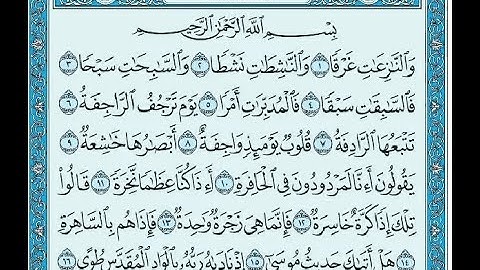 بِسْمِ ٱللَّهِ ٱلرَّحْمَٰنِ ٱلرَّحِيمِ
وَٱلنَّٰزِعَٰتِ غَرْقًا ١ وَٱلنَّٰشِطَٰتِ نَشْطًا ٢ وَٱلسَّٰبِحَٰتِ سَبْحًا ٣
فَٱلسَّٰبِقَٰتِ سَبْقًا ٤ فَٱلْمُدَبِّرَٰتِ أَمْرًا ٥ يَوْمَ تَرْجُفُ ٱلرَّاجِفَةُ ٦
تَتْبَعُهَا ٱلرَّادِفَةُ ٧ قُلُوبٌ يَوْمَئِذٍ وَاجِفَةٌ ٨ أَبْصَٰرُهَا خَٰشِعَةٌ ٩
يَقُولُونَ أَءِنَّا لَمَرْدُودُونَ فِى ٱلْحَافِرَةِ ١٠ أَءِذَا كُنَّا عِظَٰمًا نَّخِرَةً ١١ قَالُوا۟
تِلْكَ إِذًا كَرَّةٌ خَاسِرَةٌ ١٢ فَإِنَّمَا هِىَ زَجْرَةٌ وَٰحِدَةٌ ١٣ فَإِذَا هُم بِٱلسَّاهِرَةِ
١٤ هَلْ أَتَىٰكَ حَدِيثُ مُوسَىٰٓ ١٥ إِذْ نَادَىٰهُ رَبُّهُۥ بِٱلْوَادِ ٱلْمُقَدَّسِ طُوًى ١٦